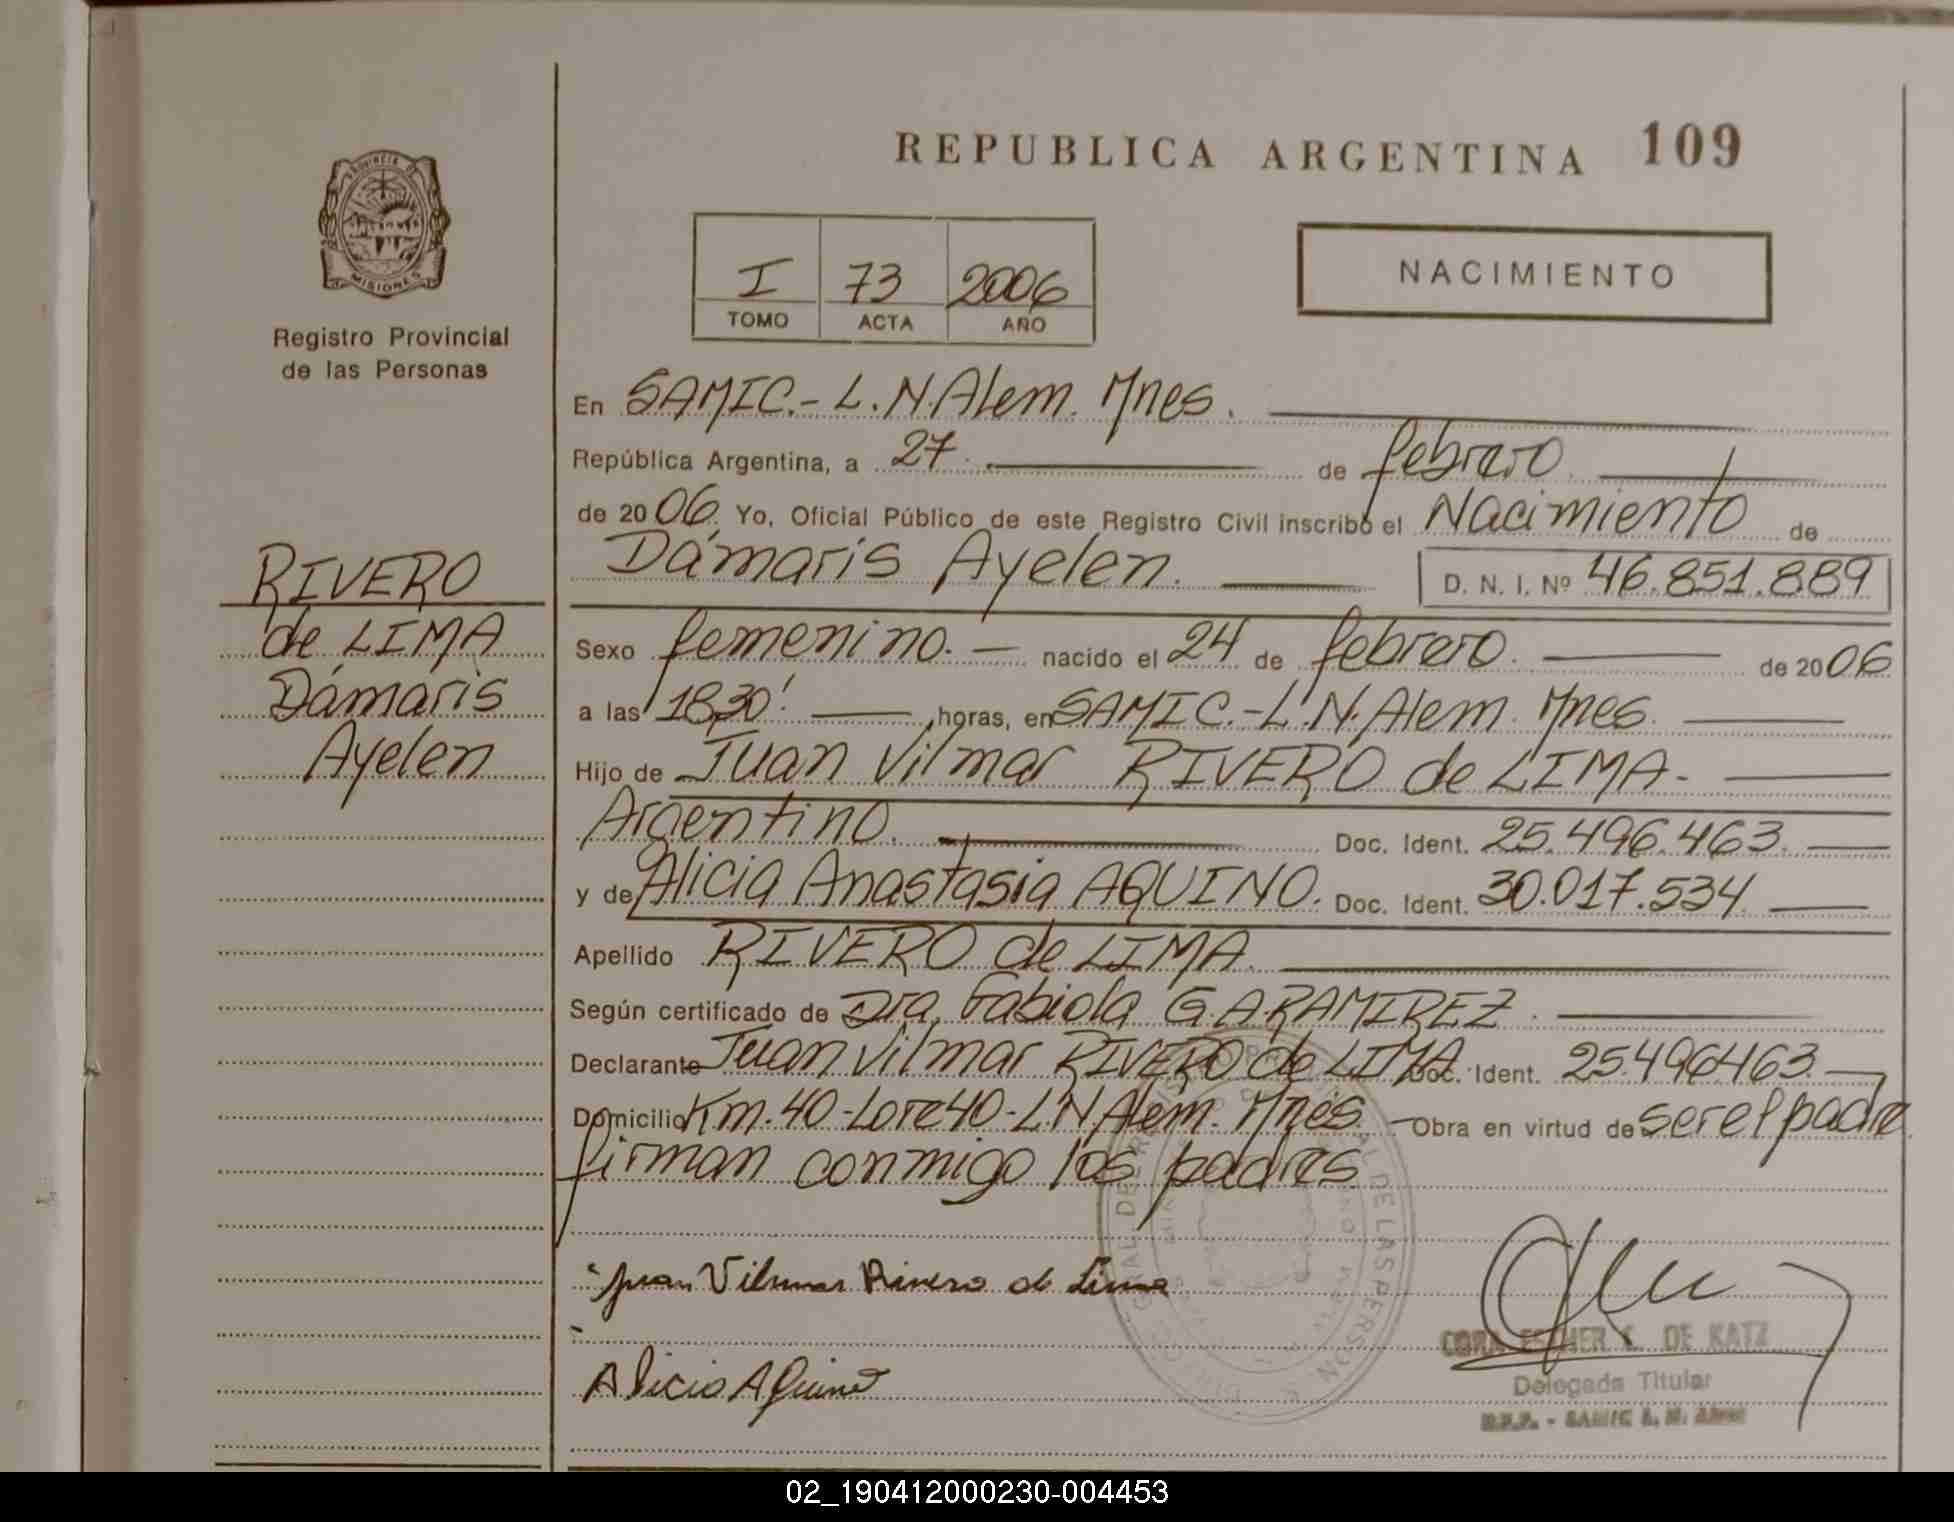 REPUBLICA ARGENTINA 109
PROVINCIA DE
MISIONES
Registro Provincial
de las Personas
I 73 2006
TOMO ACTA AÑO
NACIMIENTO
RIVERO
de LIMA
Dámaris
Ayelen
En SAMIC.- L. N. Alem. Mnes.
República Argentina, a 27 de febrero
de 2006. Yo, Oficial Público de este Registro Civil inscribo el Nacimiento de
Dámaris Ayelen. D. N. I. Nº 46.851.889
Sexo femenino. nacido el 24 de febrero. de 2006
a las 18,30' horas, en SAMIC.-L.N. Alem. Mnes.
Hijo de Juan Vilmar RIVERO de LIMA-
Argentino. Doc. Ident. 25.496.463.
y de Alicia Anastasia AQUINO. Doc. Ident. 30.017.534
Apellido RIVERO de LIMA.
Según certificado de Dra. Fabiola G.A.RAMIREZ.
Declarante Juan Vilmar RIVERO de LIMA Doc. Ident. 25.496463.
Domicilio Km.40-Lote40-L.N Alem. Mnes. Obra en virtud de ser el padre
firman conmigo los padres
Juan Vilmar Rivero de Lima
Alicia Aquino
ESTHER DE KATZ
Delegada Titular
02_190412000230-004453